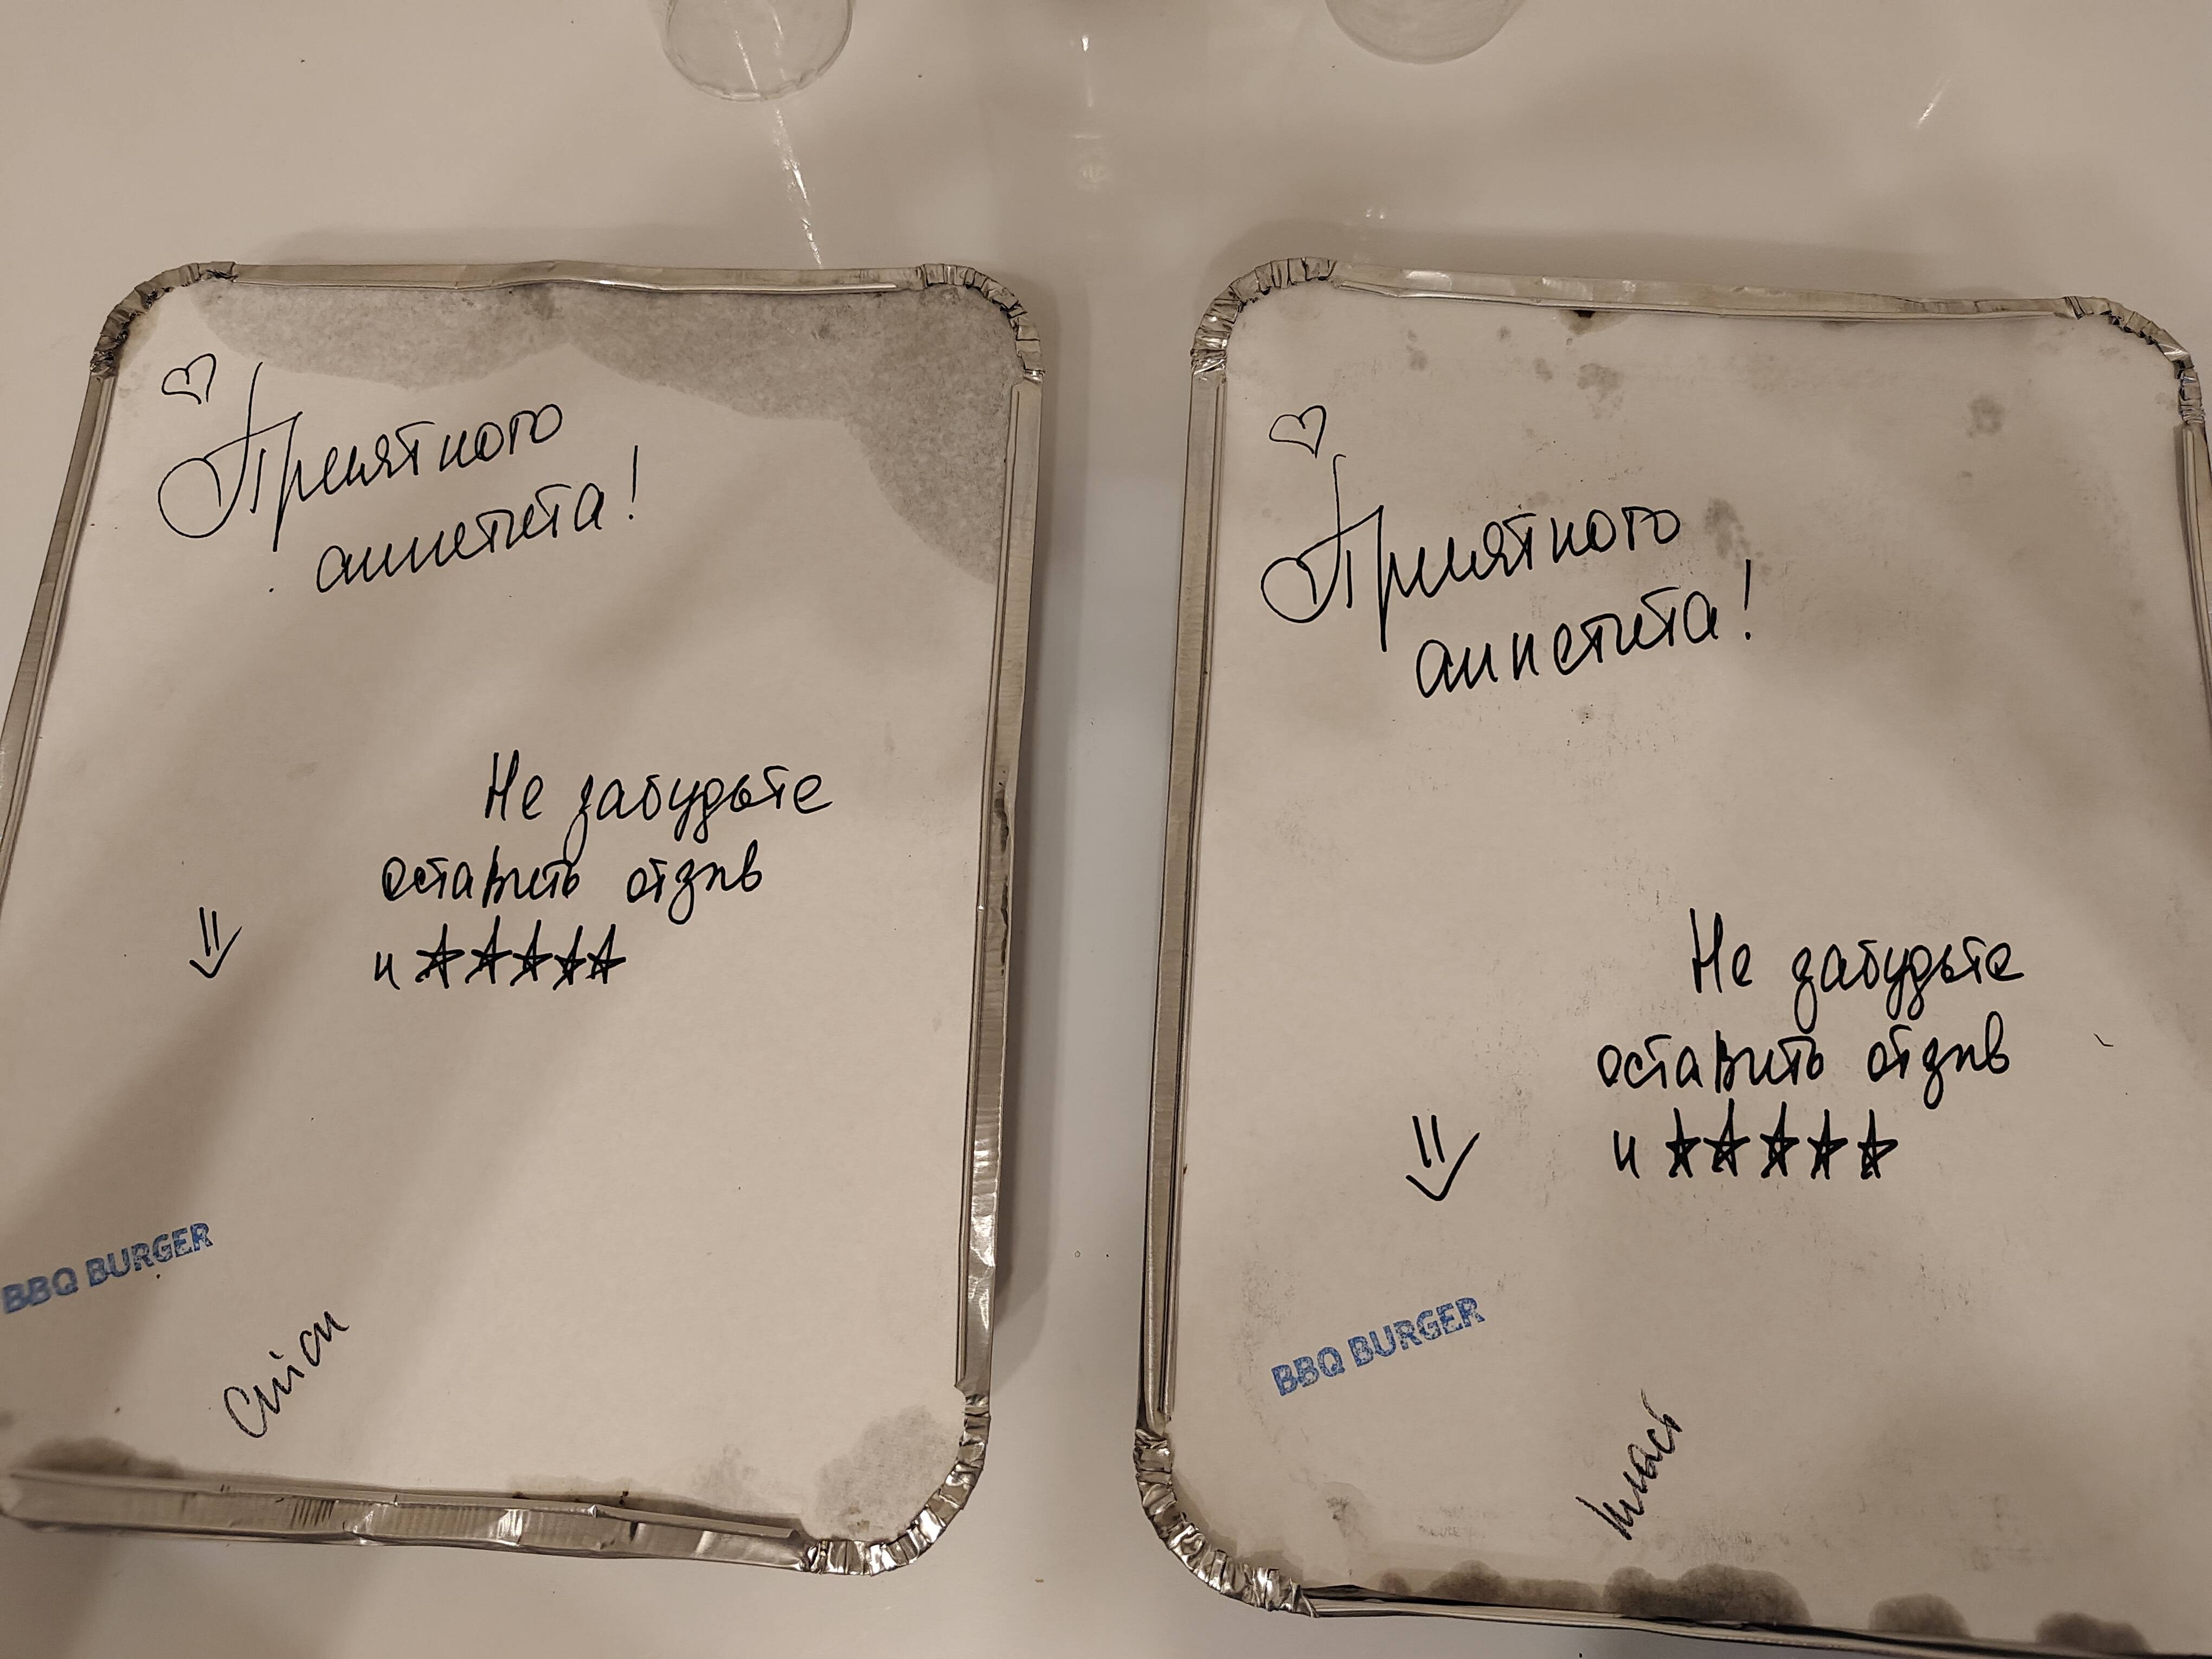 Приятного
аппетита!
Не забудьте
оставить отзыв
и ★★★★★
BBQ BURGER
Приятного
аппетита!
Не забудьте
оставить отзыв
и ★★★★★
BBQ BURGER